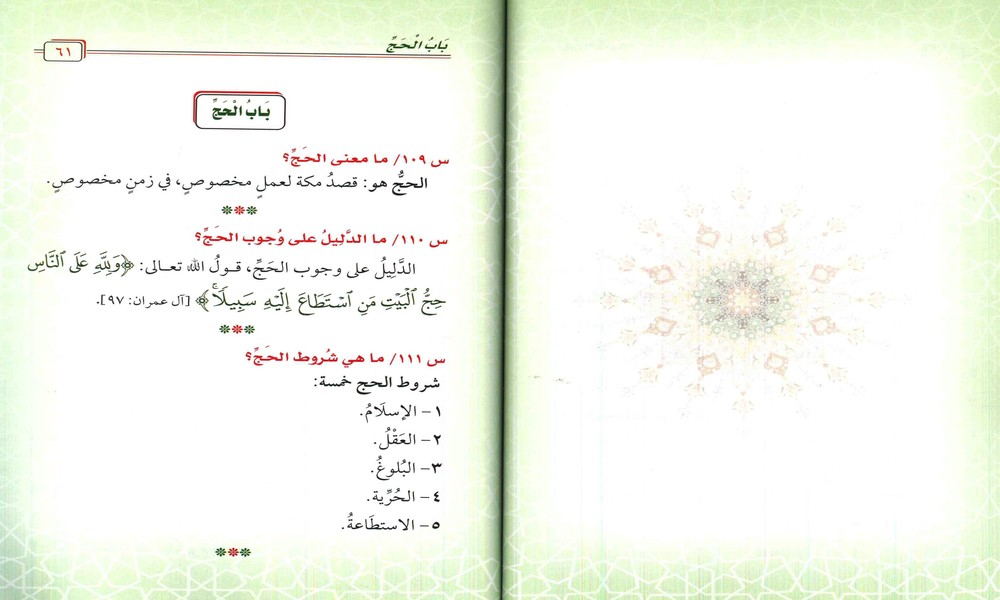 بَابُ الْحَجِّ
٦١
بَابُ الْحَجِّ
س ١٠٩/ ما معنى الحَجِّ؟
الحجُّ هو: قصدُ مكة لعملٍ مخصوصٍ، في زمنٍ مخصوصٍ.
س ١١٠/ ما الدَّلِيلُ على وُجوب الحَجِّ؟
الدَّلِيلُ على وجوب الحَجِّ، قـولُ الله تعـالى: ﴿وَلِلَّهِ عَلَى ٱلنَّاسِ
حِجُّ ٱلْبَيْتِ مَنِ ٱسْتَطَاعَ إِلَيْهِ سَبِيلًا ۚ﴾ [آل عمران: ٩٧].
س ١١١/ ما هي شُروط الحَجِّ؟
شروط الحج خمسة:
١- الإسلَامُ.
٢- العَقْلُ.
٣- البُلوغُ.
٤- الحُرِّية.
٥- الاستطَاعةُ.